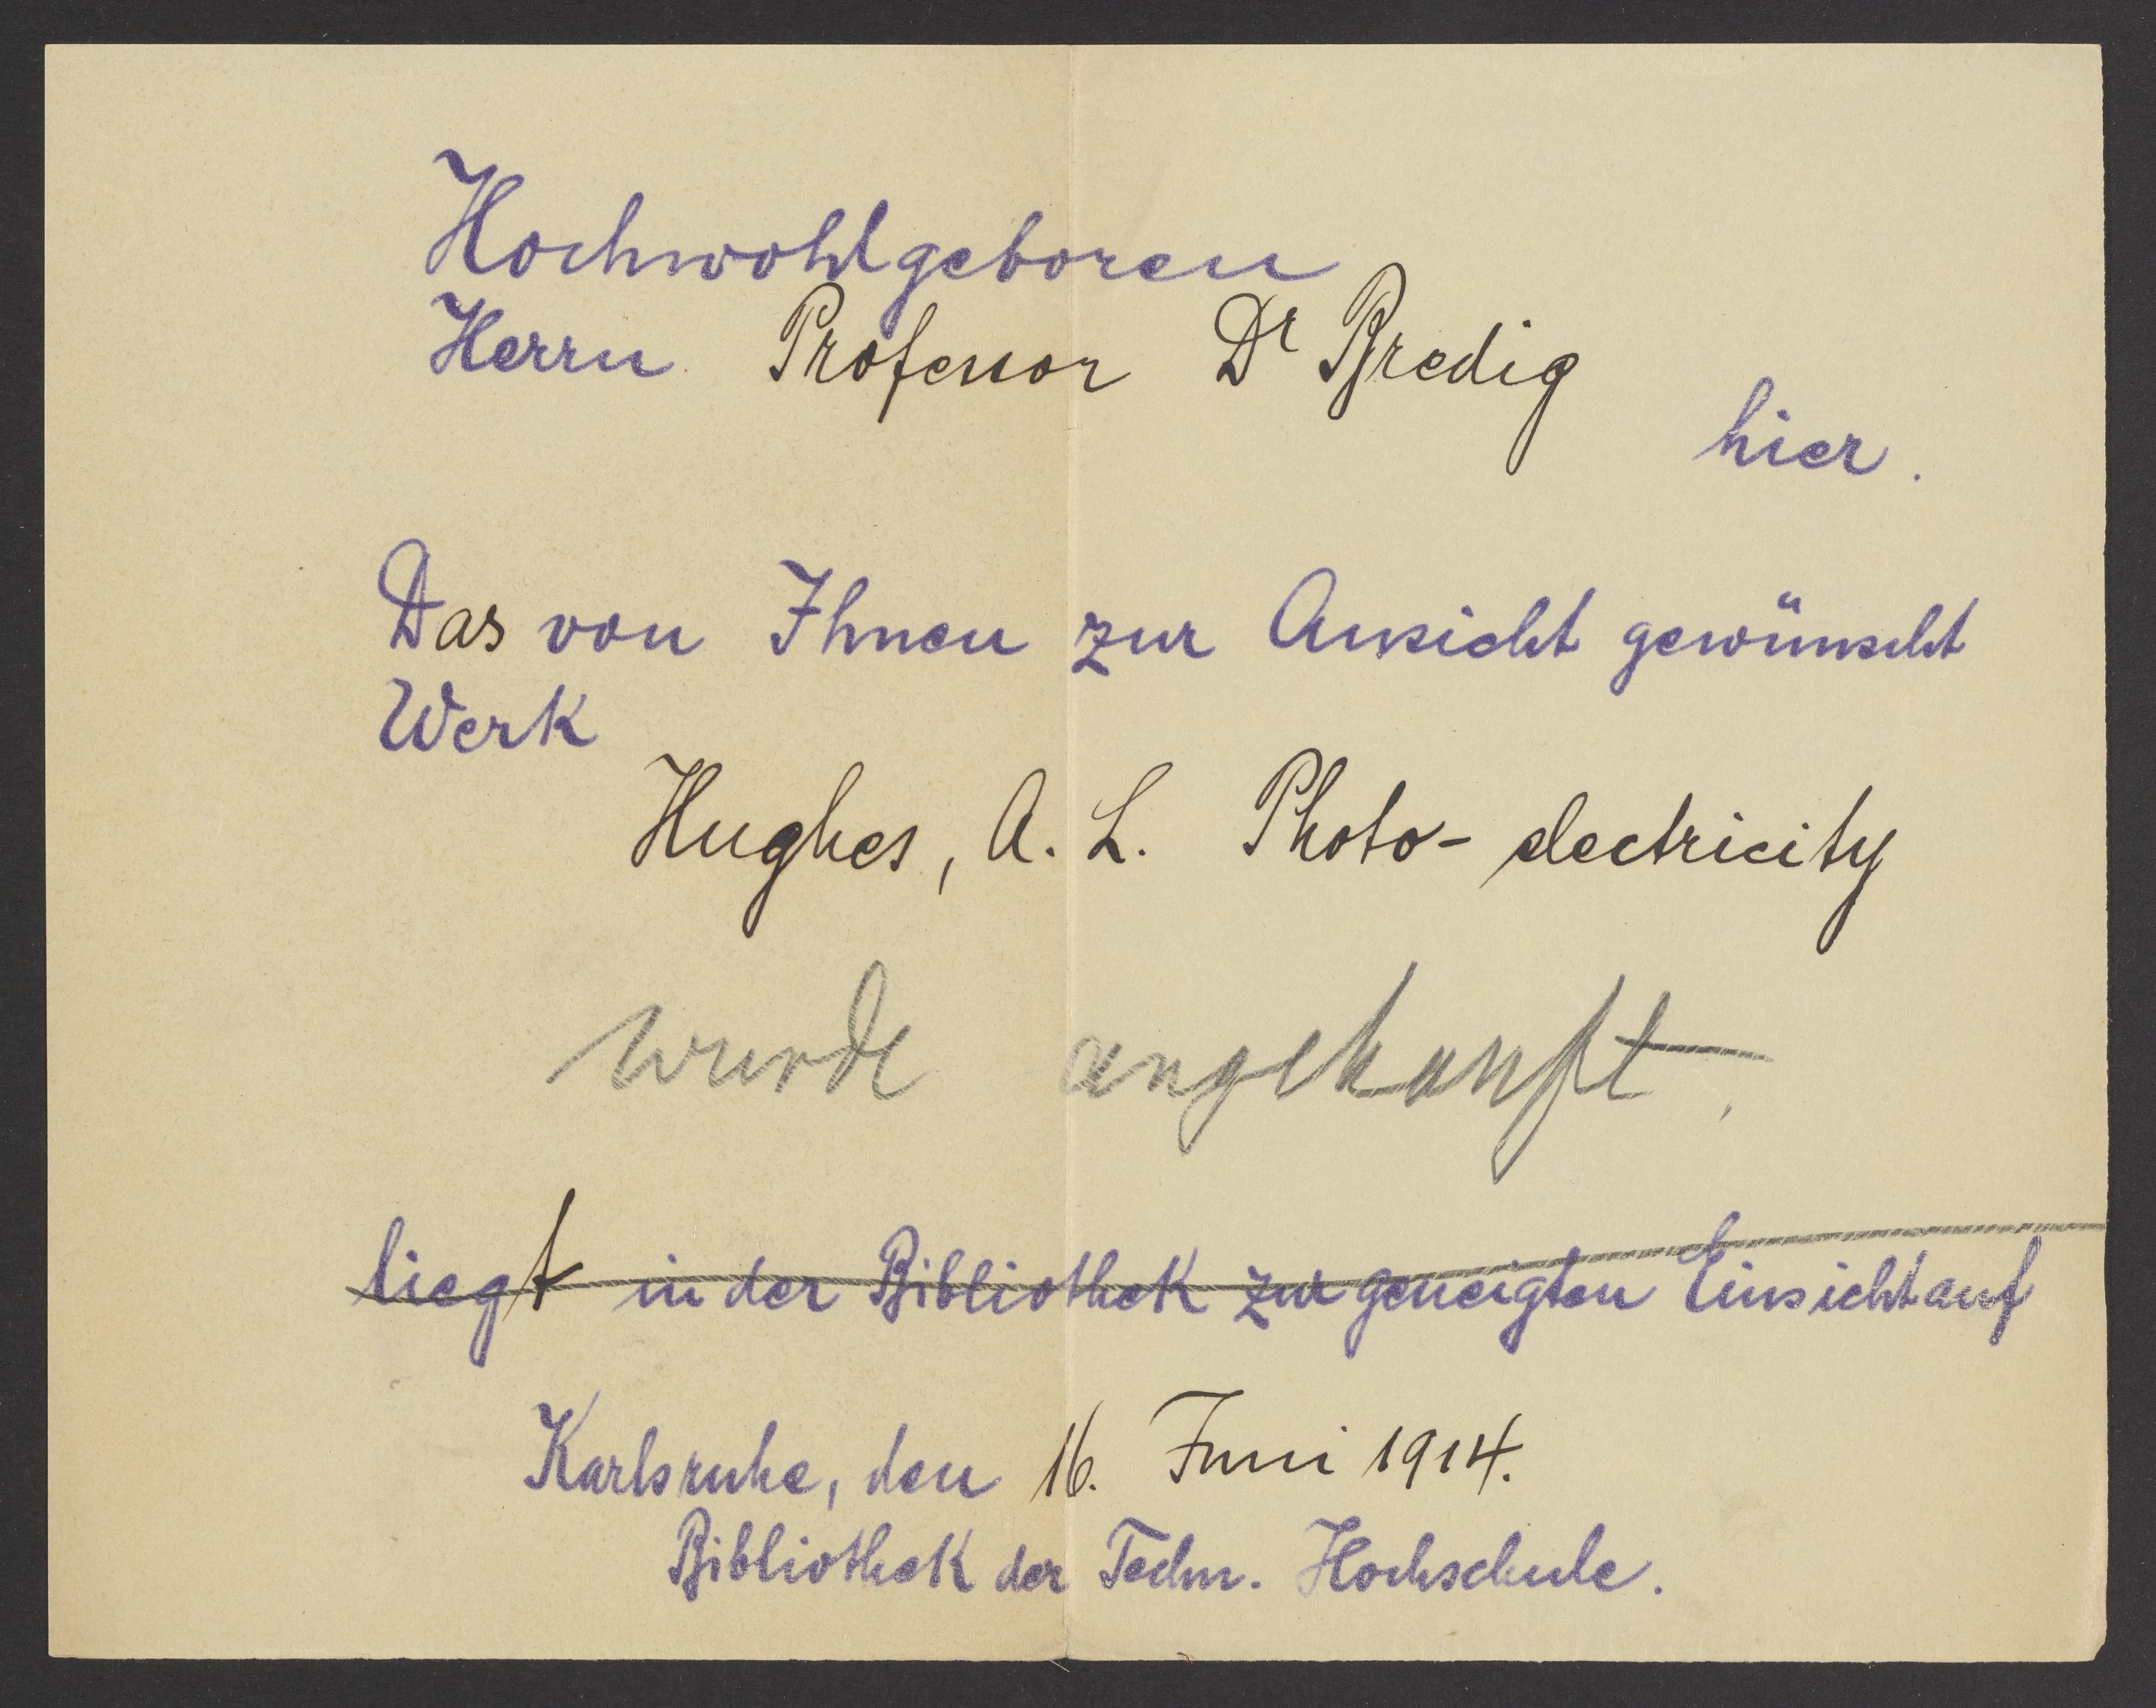 Hochwohlgeboren
Herrn Professor Dr Bredig
hier.
Das von Ihnen zur Ansicht gewünscht
Werk
Hughes, A. L. Photo-electricity
wurde angekauft.
liegt in der Bibliothek zur geneigten Einsicht auf
Karlsruhe, den 16. Juni 1914.
Bibliothek der Techn. Hochschule.